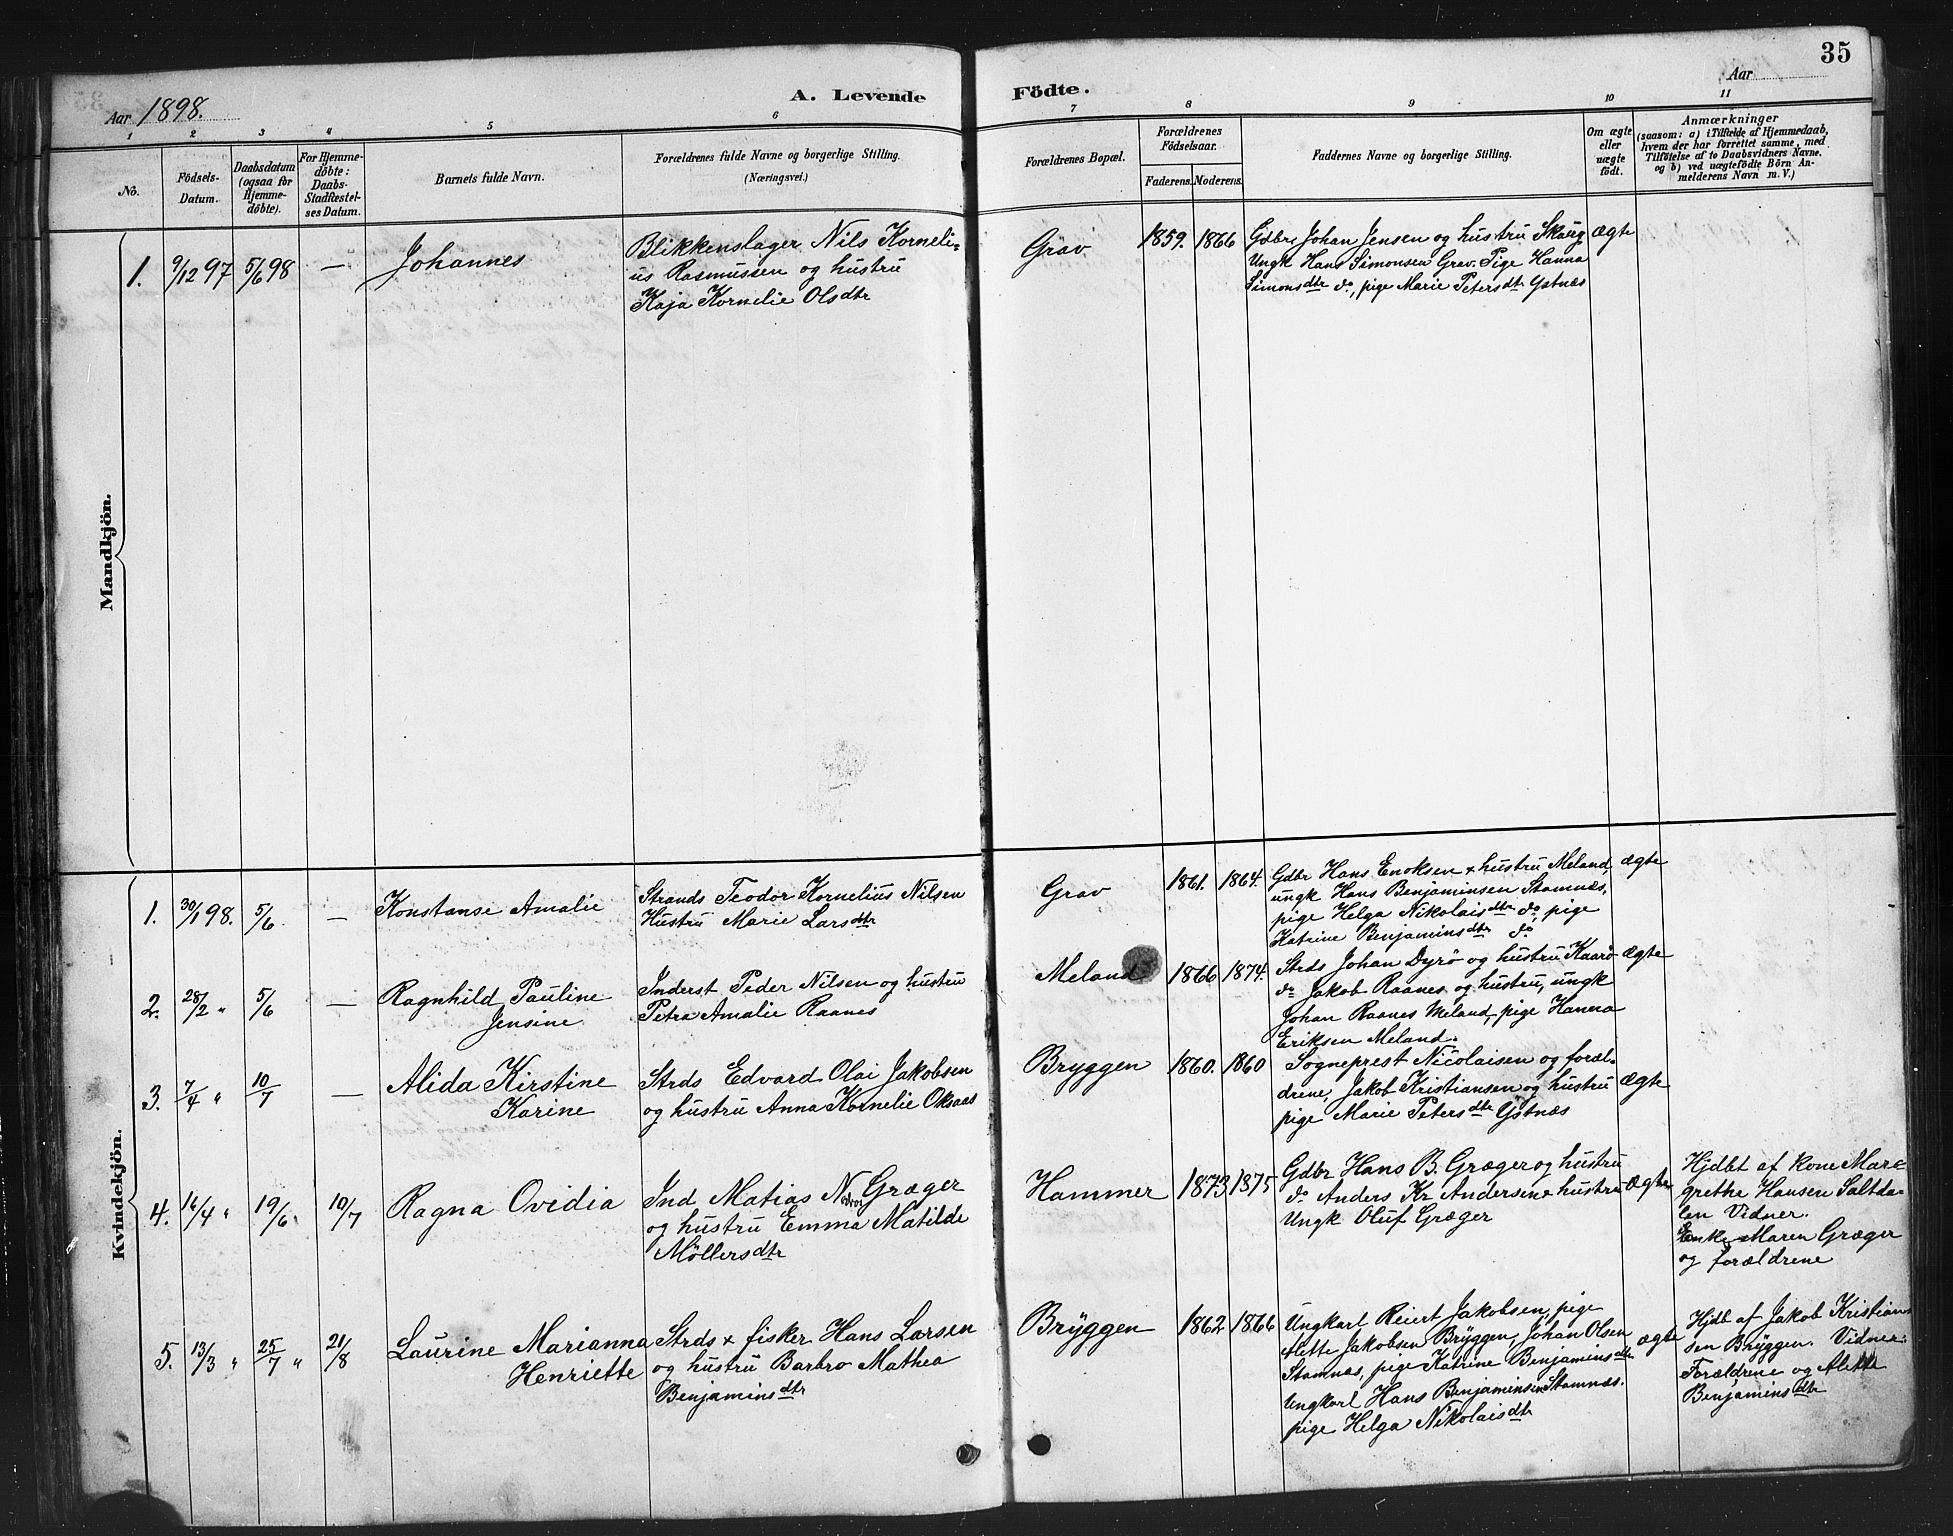 35
Aar 1898.
A. Levende Födte.
Aar
1 2 3 4 5 6 7 8 9 10 11
No.
Födsels-
Datum.
Daabsdatum
(ogsaa for
Hjemme-
döbte).
For Hjemme-
döbte:
Daabs-
Stadfæstel-
ses Datum.
Barnets fulde Navn.
Forældrenes fulde Navne og borgerlige Stilling.
(Næringsvei.)
Forældrenes Bopæl.
Forældrenes
Födselsaar.
Faderens. Moderens.
Faddernes Navne og borgerlige Stilling.
Om ægte
eller
uægte
födt.
Anmærkninger
(saasom: a) i Tilfælde af Hjemmedaab,
hvem der har forrettet samme, med
Tilföielse af to Daabsvidners Navne,
og b) ved uægtefödte Börn An-
melderens Navn m. V.)
Mandkjön.
1. 9/12 97 5/6 98 —
Johannes
Blikkenslager Nils Korneli-
us Rasmussen og hustru
Kaja Kornelie Olsdtr
Grav. 1859. 1866
Gdbr Johan Jensen og hustru Skaug
Ungk Hans Simonsen Grav. Pige Hanna
Simonsdtr do, pige Marie Petersdtr Ystnæs
ægte
Kvindekjön.
1. 30/1 98. 5/6. —
Konstanse Amalie
Strands Teodor Kornelius Nilsen
Hustru Marie Larsdtr
Grav 1861. 1864.
Gdbr Hans Enoksen & hustru Meland,
ungk Hans Benjaminsen Stamnæs,
pige Helga Nikolaisdtr do, pige
Katrine Benjaminsdtr do
ægte
2. 28/2 " 5/6 —
Ragnhild Pauline
Jensine
Inderst Peder Nilsen og hustru
Petra Amalie Raanes
Meland 1866 1874.
Strds Johan Dyrö og hustru Kaarö
do Jakob Raanes og hustru, ungk
Johan Raanes Meland, pige Hanna
Eriksen Meland.
ægte
3. 7/4 " 10/7 —
Alida Kirstine
Karine
Strds Edvard Olai Jakobsen
og hustru Anna Kornelie Oksaas
Bryggen 1860. 1860
Sogneprest Nicolaisen og foræl-
drene, Jakob Kristiansen og hustru
pige Marie Petersdtr Ystnæs
ægte
4. 16/4 " 19/6 " 10/7
Ragna Ovidia
Ind Matias Græger
og hustru Emma Matilde
Möllersdtr
Hammer 1873 1875
Gdbr Hans B. Græger og hustru
do Anders Kr Andersen & hustru
Ungk Oluf Græger
ægte
Hjdbt af kone Mare
grethe Hansen Saltda-
len Vidner.
Enke Maren Græger
og forældrene
5. 13/3 " 25/7 " 21/8
Laurine Marianna
Henriette
Strds & fisker Hans Larsen
og hustru Barbro Mathea
Benjaminsdtr
Bryggen 1862 1866
Ungkarl Reiert Jakobsen, pige
Alette Jakobsen Bryggen, Johan Olsen
Stamnæs, pige Katrine Benjaminsdtr
Ungkarl Hans Benjaminsen Stamnæs.
pige Helga Nikolaisdtr
ægte
Hjdb af Jakob Kristian-
sen Bryggen. Vidner:
Forældrene og Alette
Benjaminsdtr